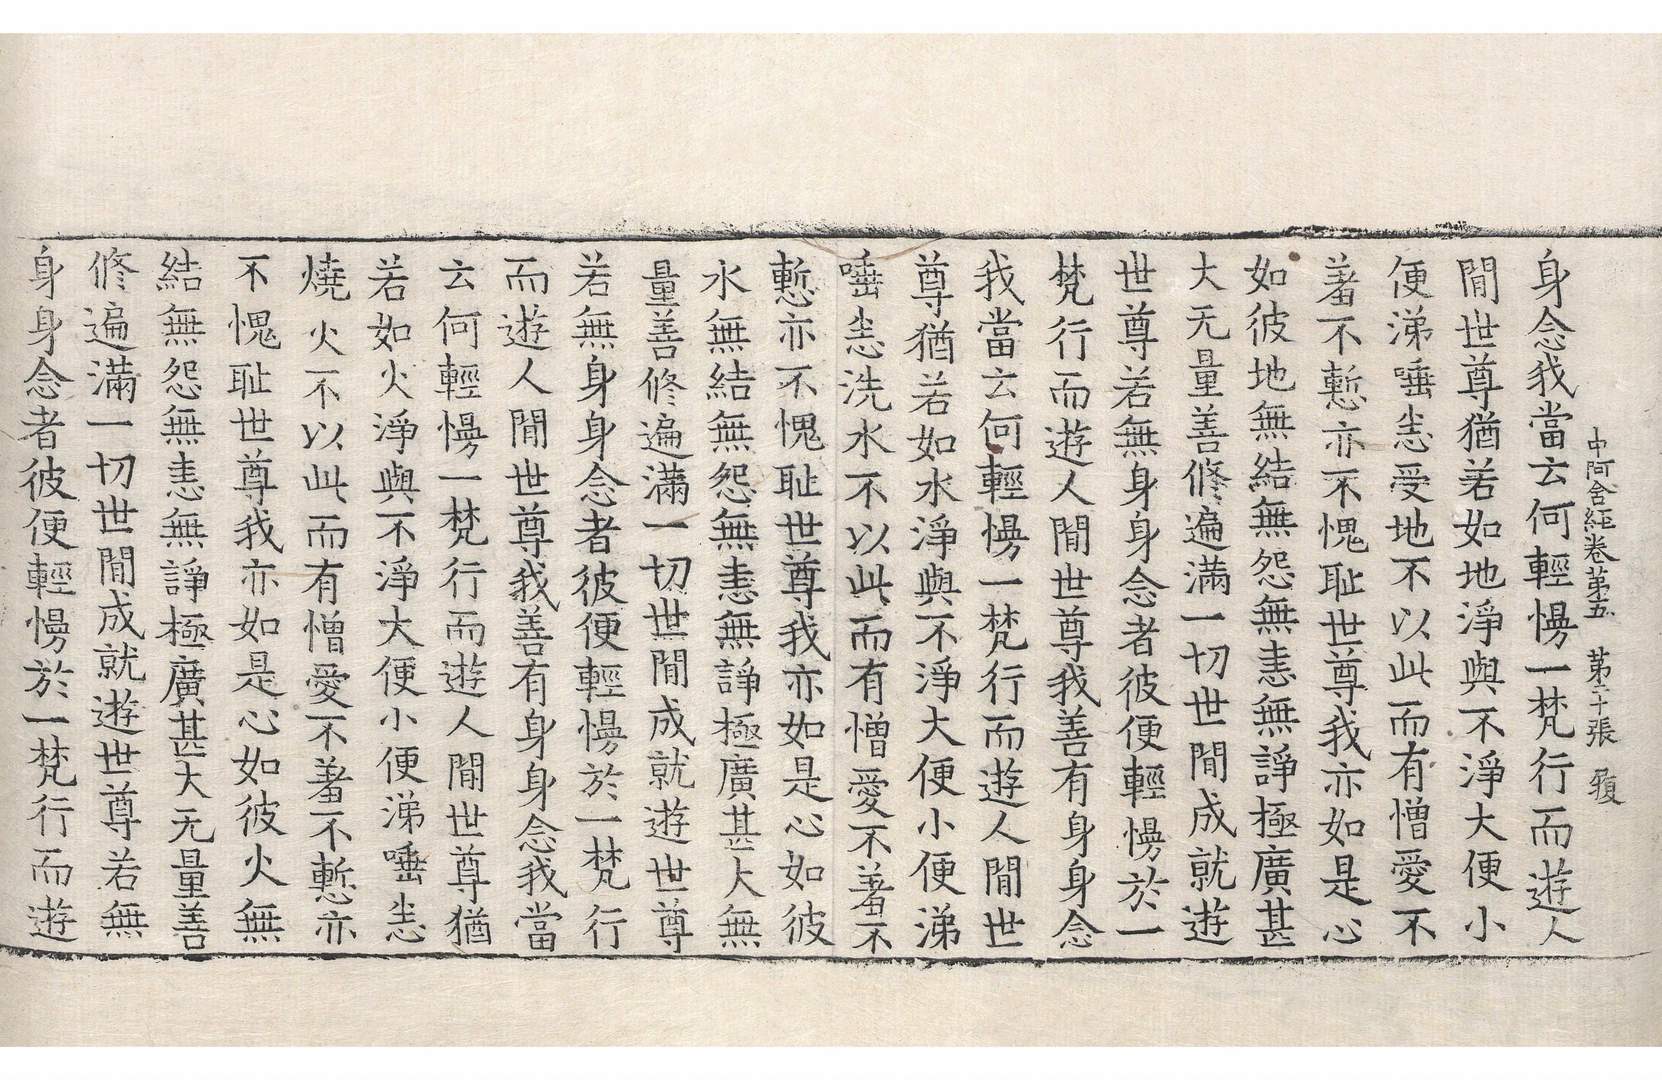 中阿含経卷第五 第二十張
身念我當云何輕慢一梵行而遊人
間世尊猶若如地淨與不淨大便小
便涕唾恚受地不以此而有憎愛不
著不慙亦不愧耻世尊我亦如是心
如彼地無結無怨無恚無諍極廣甚
大无量善修遍滿一切世間成就遊
世尊若無身身念者彼便輕慢於一
梵行而遊人間世尊我善有身身念
我當云何輕慢一梵行而遊人間世
尊猶若如水淨與不淨大便小便涕
唾恚洗水不以此而有憎愛不著不
慙亦不愧耻世尊我亦如是心如彼
水無結無怨無恚無諍極廣甚大無
量善修遍滿一切世間成就遊世尊
若無身身念者彼便輕慢於一梵行
而遊人間世尊我善有身身念我當
云何輕慢一梵行而遊人間世尊猶
若如火淨與不淨大便小便涕唾恚
燒火不以此而有憎愛不著不慙亦
不愧耻世尊我亦如是心如彼火無
結無怨無恚無諍極廣甚大无量善
修遍滿一切世間成就遊世尊若無
身身念者彼便輕慢於一梵行而遊